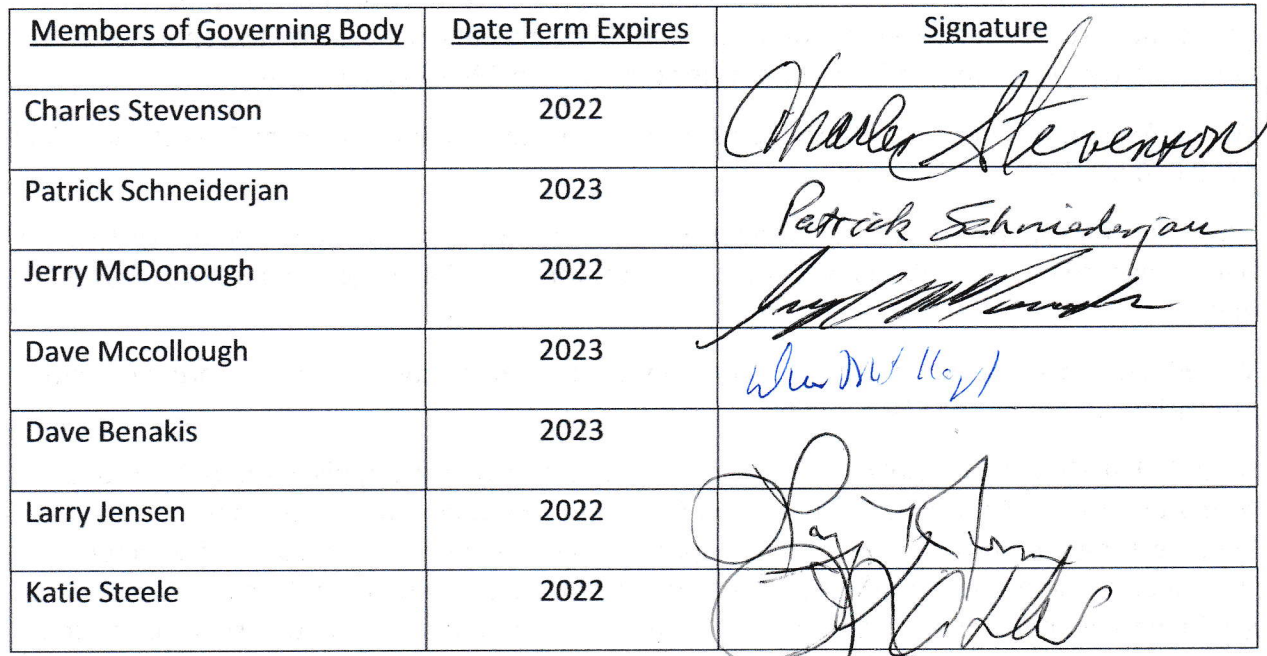 Members of Governing Body Date Term Expires Signature
Charles Stevenson 2022 Charles Stevenson
Patrick Schneiderjan 2023 Patrick Schniederjan
Jerry McDonough 2022
Dave Mccollough 2023
Dave Benakis 2023
Larry Jensen 2022
Katie Steele 2022